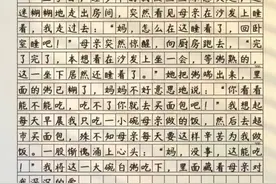 迷糊糊地走出房间，突然看见母亲在沙发上睡
着，我走过去："妈，怎么在这睡着了，回卧
室睡吧！"母亲突然惊醒，向厨房跑去，"完
了，完了，本想着在沙发上坐一会，等粥熟的，
这一坐下居然还睡着了。"她把粥端出来，里
面的粥已糊了，妈妈不好意思地说："你看看
能不能吃，吃不了你就去买面包吧！"我想起
每天早晨我只吃一小碗母亲做的饭，然后去超
市买面包，殊不知母亲每天要这样辛苦为我做
饭。一股惭愧涌上心头："妈，没事，这能吃
！"我将这一大碗白粥吃下，里面藏着母亲对
我深沉的爱